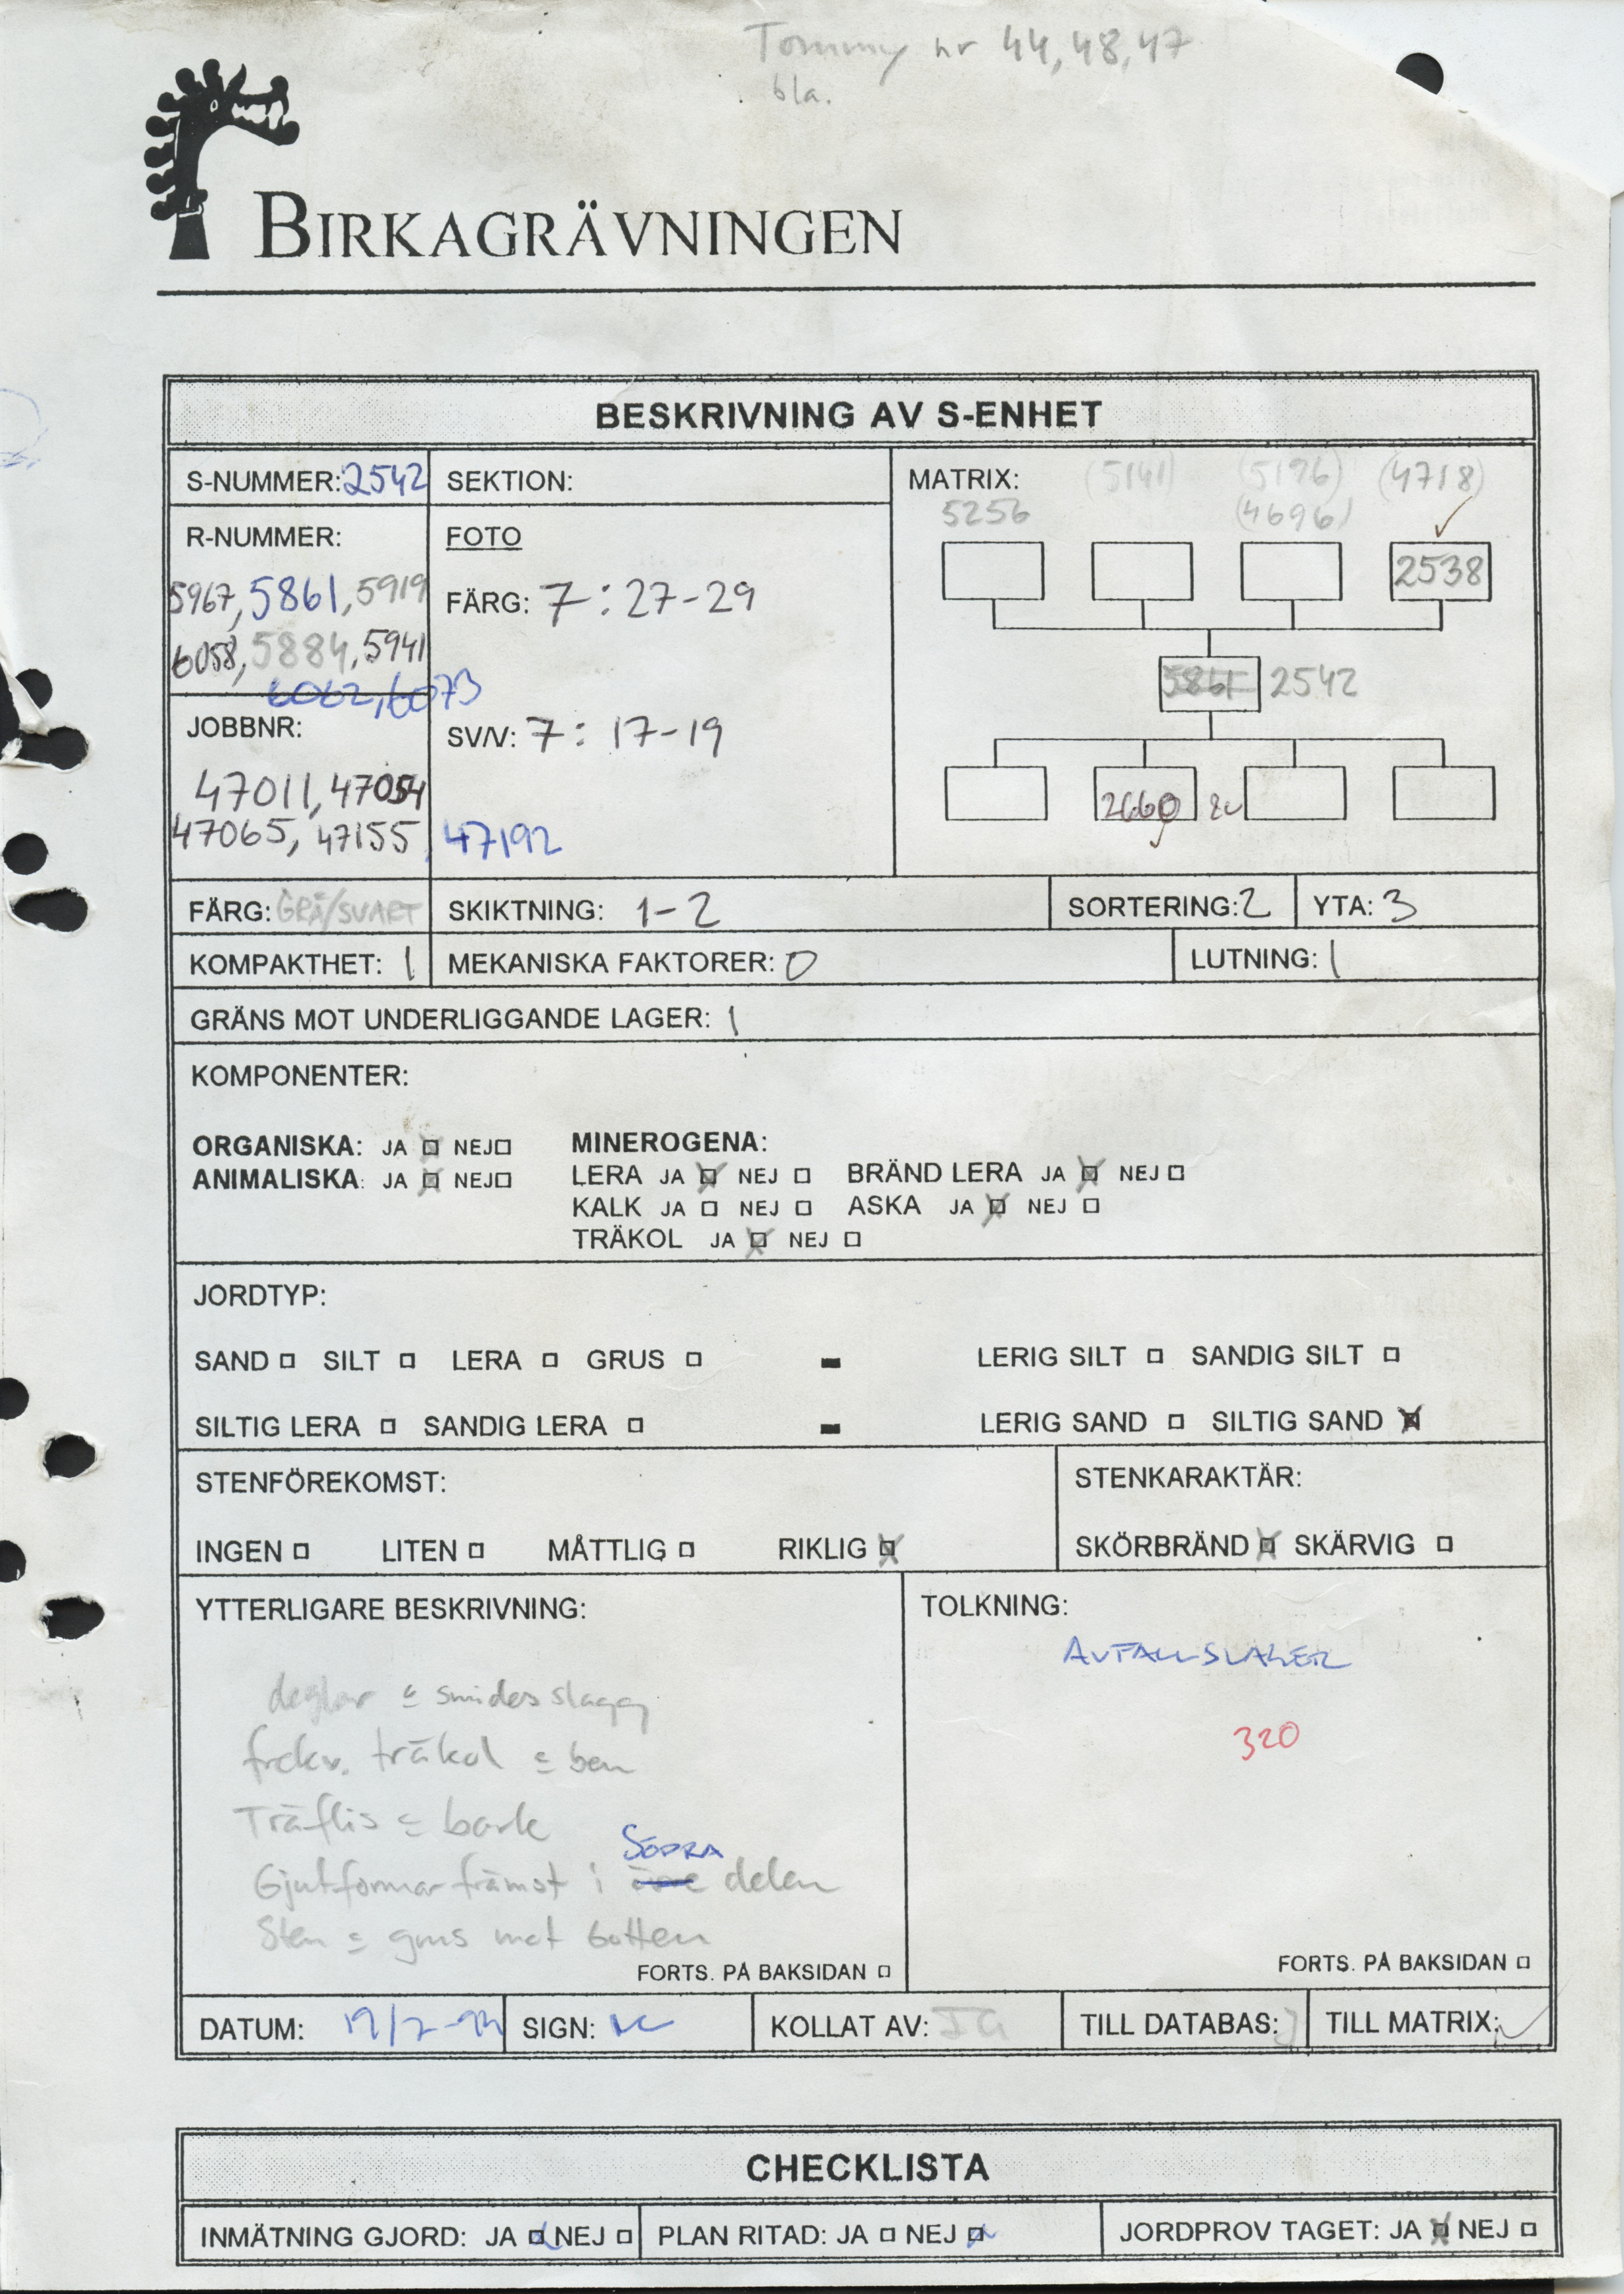 Tommy nr 44, 48, 47
bla.
BIRKAGRÄVNINGEN
BESKRIVNING AV S-ENHET
S-NUMMER: 2542
SEKTION:
MATRIX: (5141) (5196) (4718)
5256 (4696)
R-NUMMER:
5967, 5861, 5919
6058, 5884, 5941
6062, 6073
FOTO
FÄRG: 7: 27-29
SV/V: 7: 17-19
2538
5861 2542
2660
JOBBNR:
47011, 47054
47065, 47155, 47192
FÄRG: GRÅ/SVART
SKIKTNING: 1-2
SORTERING: 2
YTA: 3
KOMPAKTHET: 1
MEKANISKA FAKTORER: 0
LUTNING: 1
GRÄNS MOT UNDERLIGGANDE LAGER: 1
KOMPONENTER:
ORGANISKA: JA NEJ
ANIMALISKA: JA NEJ
MINEROGENA:
LERA JA NEJ BRÄND LERA JA NEJ
KALK JA NEJ ASKA JA NEJ
TRÄKOL JA NEJ
JORDTYP:
SAND SILT LERA GRUS - LERIG SILT SANDIG SILT
SILTIG LERA SANDIG LERA - LERIG SAND SILTIG SAND
STENFÖREKOMST:
INGEN LITEN MÅTTLIG RIKLIG
STENKARAKTÄR:
SKÖRBRÄND SKÄRVIG
YTTERLIGARE BESKRIVNING:
deglar & smidesslagg
frekv. träkol & ben
Träflis & bark
SÖDRA
Gjutformar främst i delen
Sten & grus mot botten
FORTS. PÅ BAKSIDAN
TOLKNING:
AVFALLSLAGER
320
FORTS. PÅ BAKSIDAN
DATUM:
SIGN:
KOLLAT AV:
TILL DATABAS:
TILL MATRIX:
CHECKLISTA
INMÄTNING GJORD: JA NEJ
PLAN RITAD: JA NEJ
JORDPROV TAGET: JA NEJ